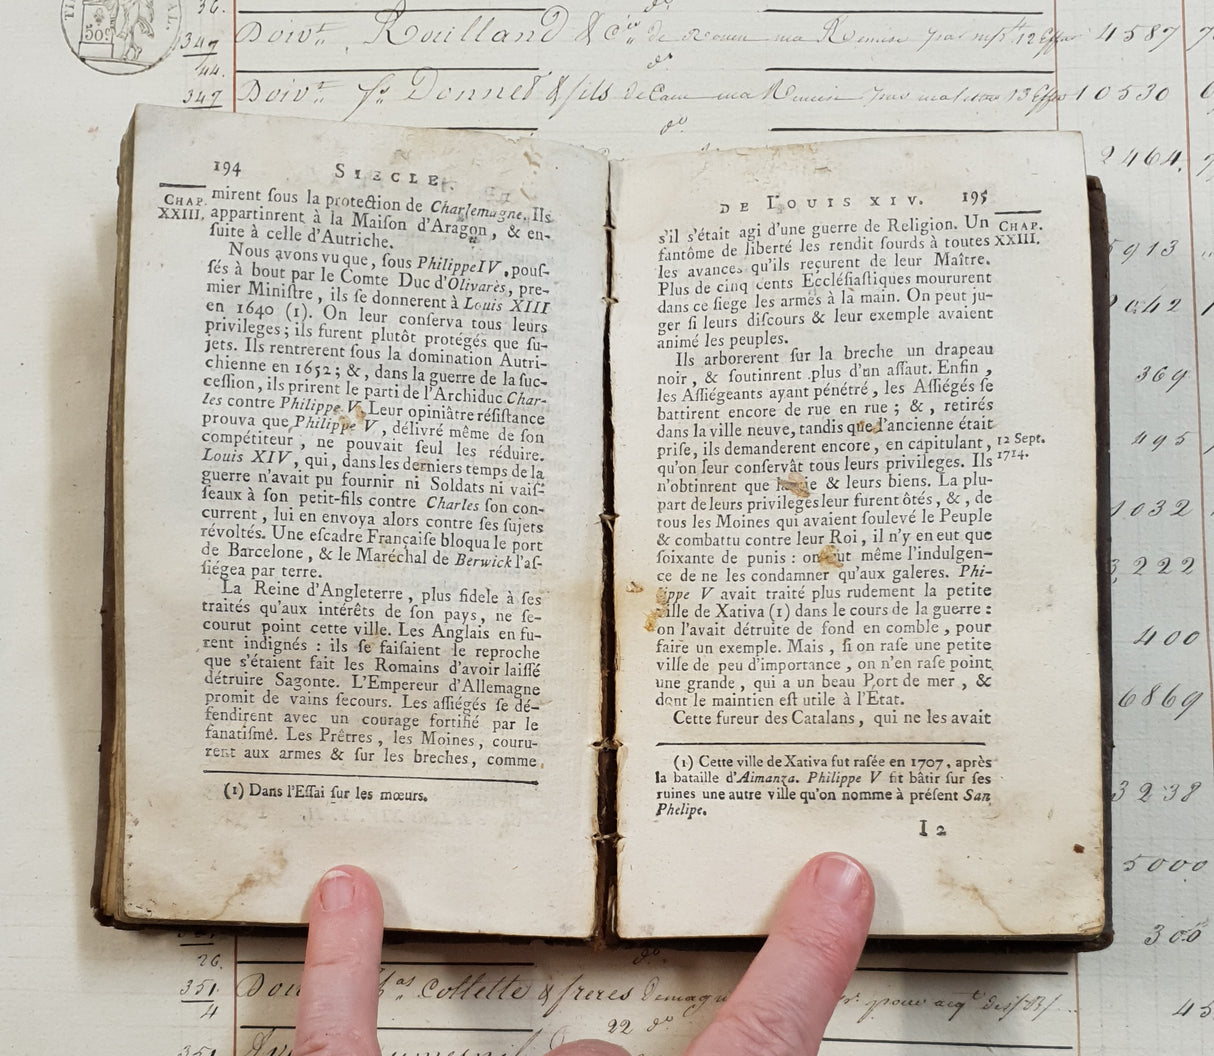 36.
do
347 Doivt. Rouilland & Cie de Rouen ma Remise par m/ 12
4587
44.
do
347 Doivt. Donnet & fils de Caen ma Remise par ma lettre 13
10530
do
50c
2464.
194 SIECLE
CHAP. XXIII.
mirent ſous la protection de Charlemagne. Ils
appartinrent à la Maiſon d'Aragon, & en-
ſuite à celle d'Autriche.
Nous avons vu que, ſous Philippe IV, pouſ-
ſés à bout par le Comte Duc d'Olivarès, pre-
mier Miniſtre, ils ſe donnerent à Louis XIII
en 1640 (1). On leur conſerva tous leurs
privileges; ils furent plutôt protégés que ſu-
jets. Ils rentrerent ſous la domination Autri-
chienne en 1652; &, dans la guerre de la ſuc-
ceſſion, ils prirent le parti de l'Archiduc Char-
les contre Philippe V. Leur opiniâtre réſiſtance
prouva que Philippe V, délivré même de ſon
compétiteur, ne pouvait ſeul les réduire.
Louis XIV, qui, dans les derniers temps de la
guerre n'avait pu fournir ni Soldats ni vaiſ-
ſeaux à ſon petit-fils contre Charles ſon con-
current, lui en envoya alors contre ſes ſujets
révoltés. Une eſcadre Françaiſe bloqua le port
de Barcelone, & le Maréchal de Berwick l'aſ-
ſiégea par terre.
La Reine d'Angleterre, plus fidele à ſes
traités qu'aux intérêts de ſon pays, ne ſe-
courut point cette ville. Les Anglais en fu-
rent indignés: ils ſe faiſaient le reproche
que s'étaient fait les Romains d'avoir laiſſé
détruire Sagonte. L'Empereur d'Allemagne
promit de vains ſecours. Les aſſiégés ſe dé-
fendirent avec un courage fortifié par le
fanatiſme. Les Prêtres, les Moines, couru-
rent aux armes & ſur les breches, comme
(1) Dans l'Eſſai ſur les mœurs.
DE LOUIS XIV. 195
CHAP. XXIII.
s'il s'était agi d'une guerre de Religion. Un
fantôme de liberté les rendit ſourds à toutes
les avances qu'ils reçurent de leur Maître.
Plus de cinq cents Eccléſiaſtiques moururent
dans ce ſiege les armes à la main. On peut ju-
ger ſi leurs diſcours & leur exemple avaient
animé les peuples.
Ils arborerent ſur la breche un drapeau
noir, & ſoutinrent plus d'un aſſaut. Enfin,
les Aſſiégeants ayant pénétré, les Aſſiégés ſe
battirent encore de rue en rue; &, retirés
dans la ville neuve, tandis que l'ancienne était
priſe, ils demanderent encore, en capitulant, 12 Sept.
qu'on leur conſervât tous leurs privileges. Ils 1714.
n'obtinrent que la vie & leurs biens. La plu-
part de leurs privileges leur furent ôtés, &, de
tous les Moines qui avaient ſoulevé le Peuple
& combattu contre leur Roi, il n'y en eut que
ſoixante de punis: on eut même l'indulgen-
ce de ne les condamner qu'aux galeres. Phi-
lippe V avait traité plus rudement la petite
ville de Xativa (1) dans le cours de la guerre:
on l'avait détruite de fond en comble, pour
faire un exemple. Mais, ſi on raſe une petite
ville de peu d'importance, on n'en raſe point
une grande, qui a un beau Port de mer, &
dont le maintien eſt utile à l'Etat.
Cette fureur des Catalans, qui ne les avait
(1) Cette ville de Xativa fut raſée en 1707, après
la bataille d'Almanza. Philippe V fit bâtir ſur ſes
ruines une autre ville qu'on nomme à préſent San
Phelipe.
I 2
5913
2042
369
495
1032
3222
400
6869
3238
5000
300
26.
do
351 collette & freres
4
22 do
351
45